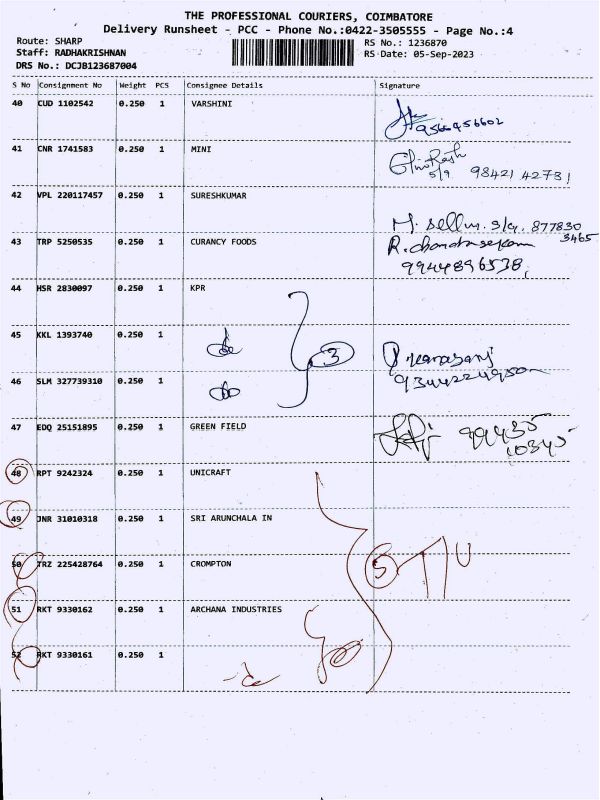 THE PROFESSIONAL COURIERS, COIMBATORE
Delivery Runsheet - PCC - Phone No.:0422-3505555 - Page No.:4
Route: SHARP RS No.: 1236870
Staff: RADHAKRISHNAN RS Date: 05-Sep-2023
DRS No.: DCJB123687004
S No Consignment No Weight PCS Consignee Details Signature
40 CUD 1102542 0.250 1 VARSHINI
9566956602
41 CNR 1741583 0.250 1 MINI
5/9 98421 42731
42 VPL 220117457 0.250 1 SURESHKUMAR
M. Sellu. 5/9. 877830
3465
43 TRP 5250535 0.250 1 CURANCY FOODS
R. chandrasekaran
9944896538
44 HSR 2830097 0.250 1 KPR
45 KKL 1393740 0.250 1
do 3
46 SLM 327739310 0.250 1
do
47 EDQ 25151895 0.250 1 GREEN FIELD
99435
10345
48 RPT 9242324 0.250 1 UNICRAFT
49 JNR 31010318 0.250 1 SRI ARUNCHALA IN
50 TRZ 225428764 0.250 1 CROMPTON
5
51 RKT 9330162 0.250 1 ARCHANA INDUSTRIES
52 RKT 9330161 0.250 1